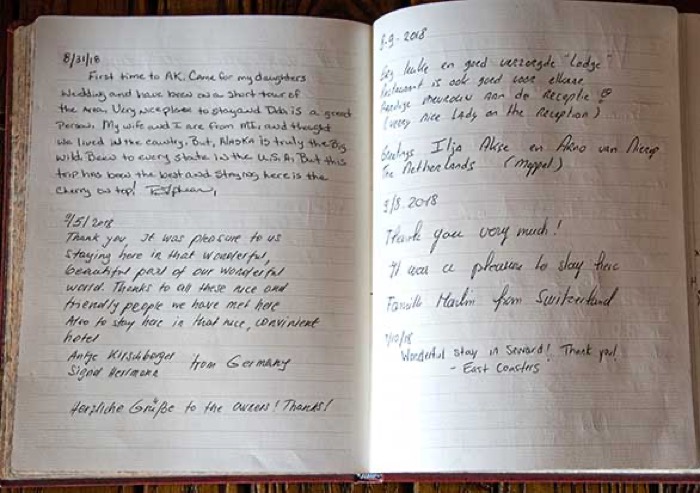 8/31/18
First time to AK. Came for my daughters
wedding and have been on a short tour of
the area. Very nice place to stay and Deb is a great
Person. My wife and I are from MI, and thought
we lived in the country. But, Alaska is truly the Big
Wild. Been to every state in the U.S.A. But this
trip has been the best and staying here is the
cherry on top!
9/5/2018
Thank you. It was pleasure to us
staying here in that wonderful,
beautiful part of our wonderful
world. Thanks to all these nice and
friendly people we have met here
Also to stay here in that nice, convinient
hotel
Antje Kirschberger
Sigrid Herrmann from Germany
Herzliche Grüße to the owners! Thanks!
8-9-2018
Erg leuke en goed verzorgde "Lodge"
Restaurant is ook goed voor elkaar
Aardige mevrouw aan de receptie
(very nice Lady on the reception)
Greetings Ilja Akse en Arno van
The Netherlands (Meppel)
9/8.2018
Thank you very much!
It was a pleasure to stay here
Famille Martin from Switzerland
/10/18
Wonderful stay in Seward! Thank you!
- East Coasters